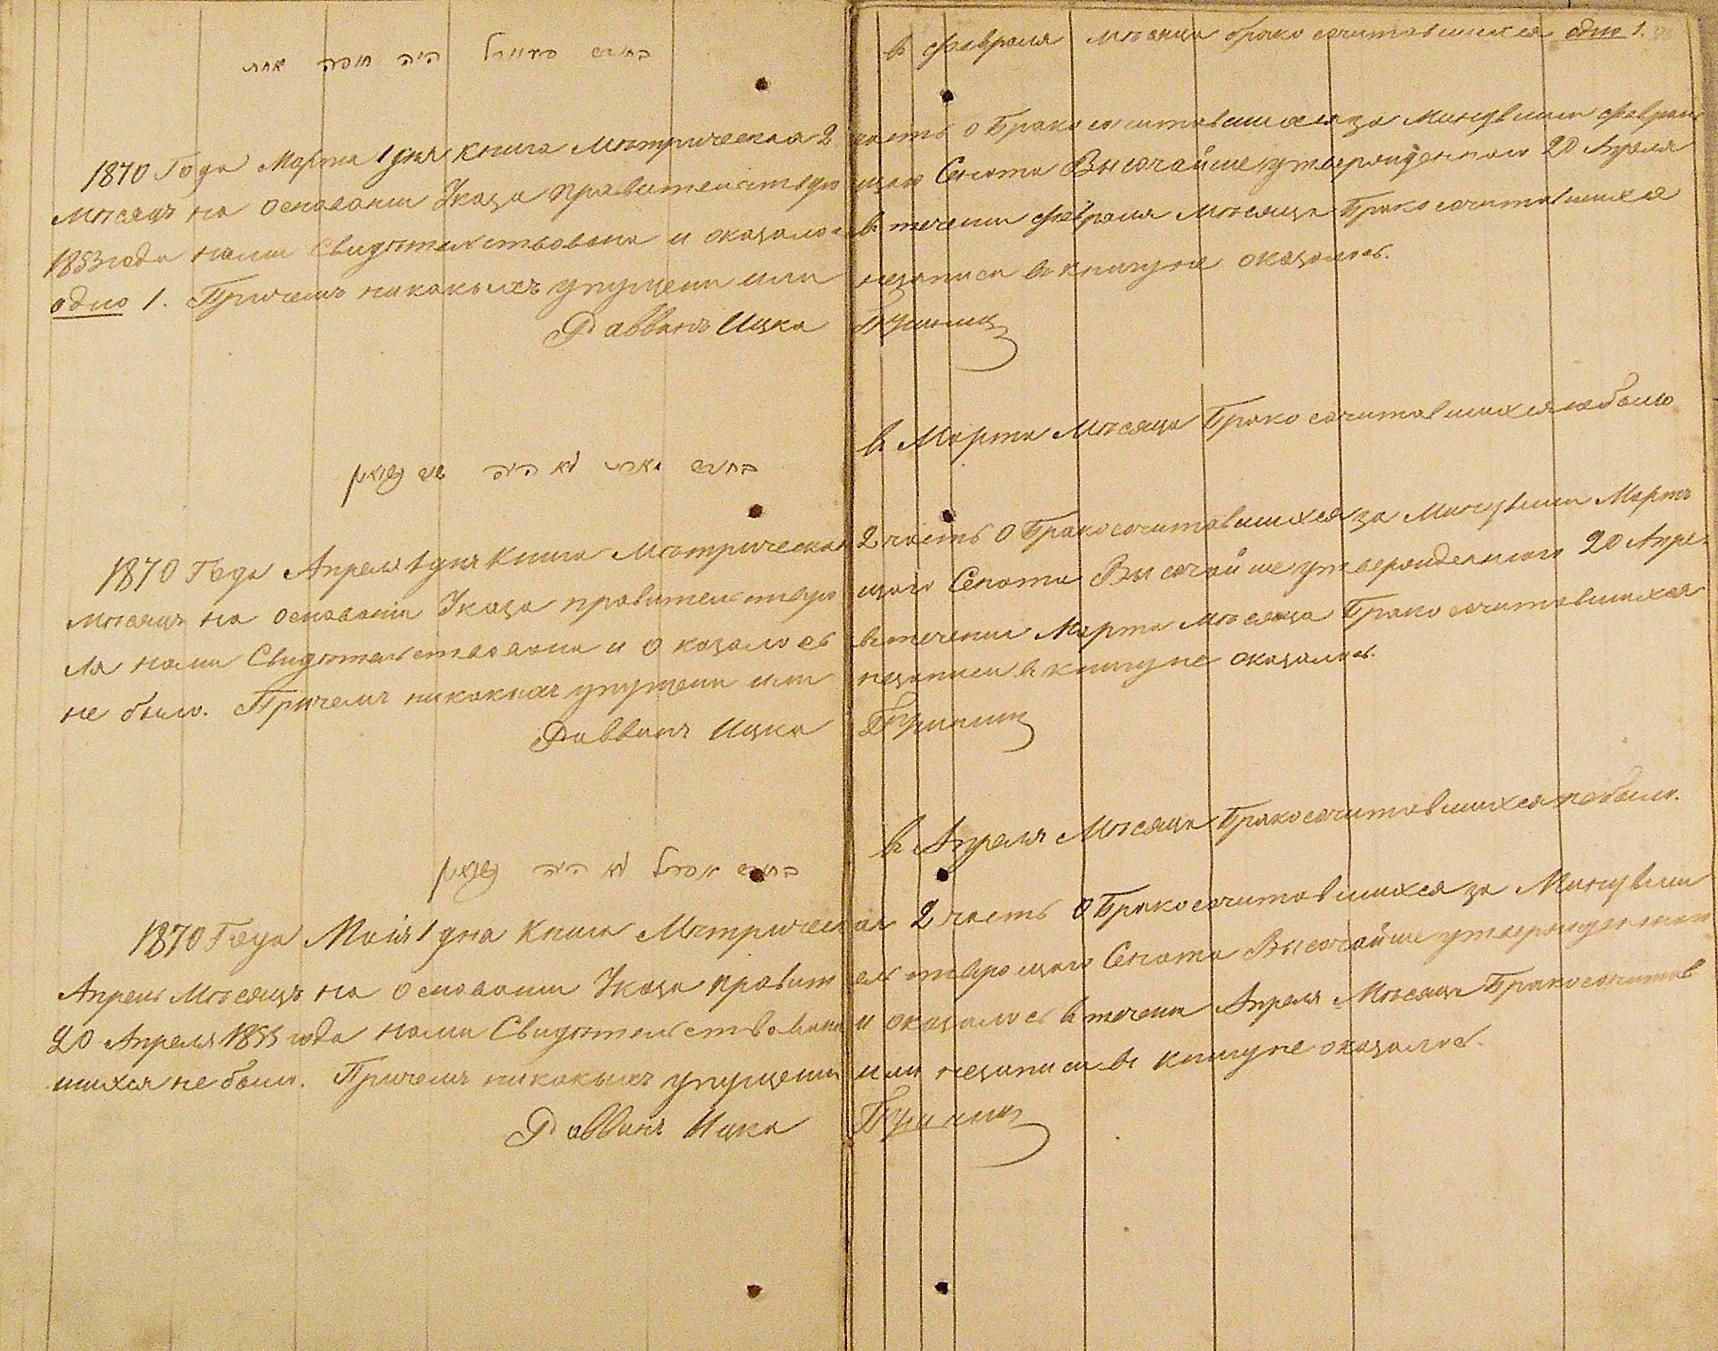 בחודש פעווראל היה חופה אחת
в февраля мѣсяца бракосочитавшихся одно 1.
1870 Года Марта 1 дня книга Метрическая 2 часть о Бракосочитавшихся за Минувшии февраль
Мѣсяцъ на основании Указа правительствую щаго Сената Высочайше утвержденнаго 20 Апреля
1853 года нами свидѣтельствована и оказалось в течении февраля Мѣсяца Бракосочитавшихся
одно 1. Причемъ никакихъ упущени или незаписи в книгу не оказалось.
Раввинъ Ицка
в Марта Мѣсяца Бракосочитавшихся небыло
בחודש מארט לא היה
1870 Года Апреля 1 дня Книга Метрическая 2 часть о Бракосочитавшихся за Минувшии Мартъ
мѣсяцъ на основании Указа правительствую щаго Сената Высочайше утвержденнаго 20 Апре-
ля нами Свидѣтельствована и оказалось в течении Марта мѣсяца Бракосочитавшихся
не было. Причемъ никакихъ упущени или незаписи в книгу не оказалось.
Раввинъ Ицка
в Апреля Мѣсяца Бракосочитавшихся небыло.
בחודש אפריל לא היה
1870 Года Маія 1 дня Книга Метрическая 2 часть О Бракосочитавшихся за Минувшии
Апрель Мѣсяцъ на основании Указа правительствующаго Сената Высочайше утвержденнаго
20 Апреля 1853 года нами Свидѣтельствована и оказалось в течени Апреля Мѣсяца Бракосочитав
шихся не было. Причемъ никакихъ упущении или незаписи в книгу не оказалось.
Раввинъ Ицка